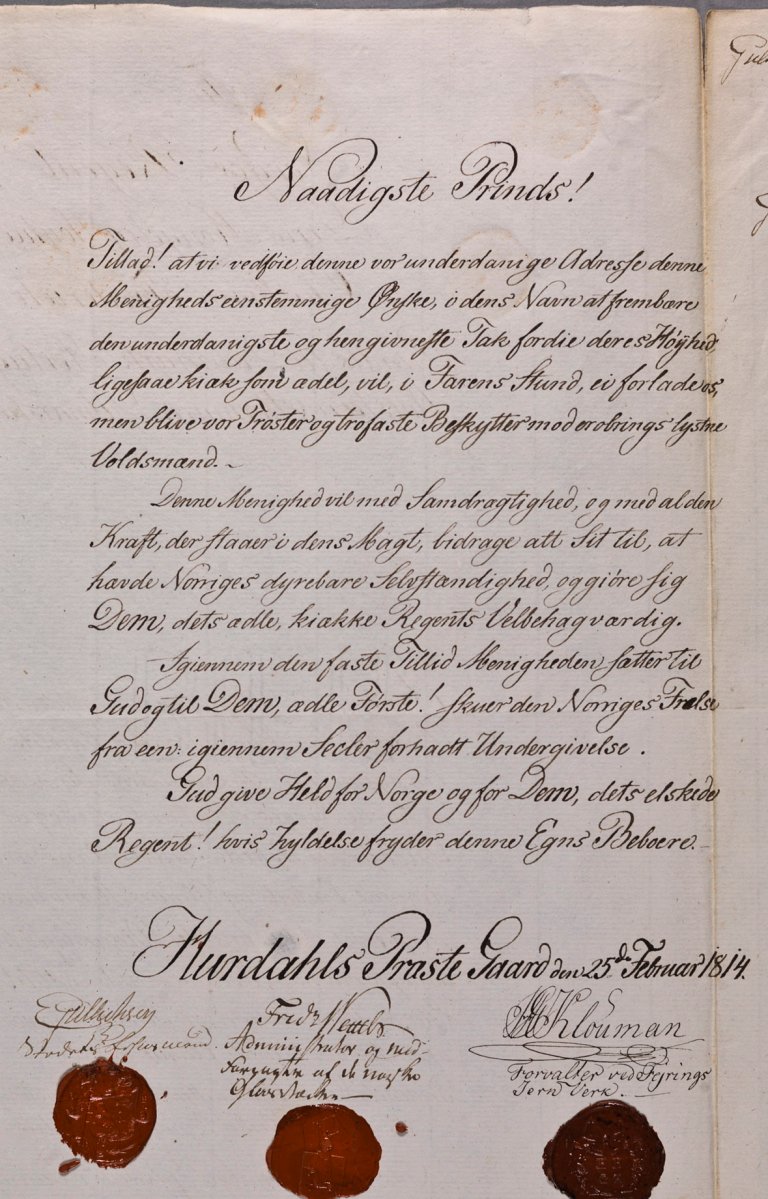 Naadigste Prinds!
Tillad! at vi vedføie denne vor underdanige Adresse denne
Menigheds eenstemmige Ønske, i dens Navn at frembære
den underdanigste og hengivneste Tak fordie deres Høÿhed,
ligesaae kiæk som ædel, vil, i Farens Stund, ei forlade os,
men blive vor Trøster og trofaste Beskytter mod erobrings lystne
Voldsmænd.
Denne Menighed vil med Samdragtighed, og med al den
Kraft, der staaer i dens Magt, bidrage alt Sit til, at
hævde Norriges dyrebare Selvstændighed, og giöre sig
Dem, dets ædle, kiække Regents Velbehag værdig.
Igiennem den faste Tillid Menigheden sætter til
Gud og til Dem, ædle Förste! skuer den Norriges Frelse
fra een: igiennem Secler forhadt Undergivelse.
Gud give Held for Norge og for Dem, dets elskede
Regent! hvis Hyldelse fryder denne Egns Beboere.
Hurdahls Præste Gaard den 25de Februar 1814.
Stedets
Fridr
Administrator og med-
Forpagter af de norske
Glasværker
Klouman
Forvalter ved Fejrings
Jern Verk.